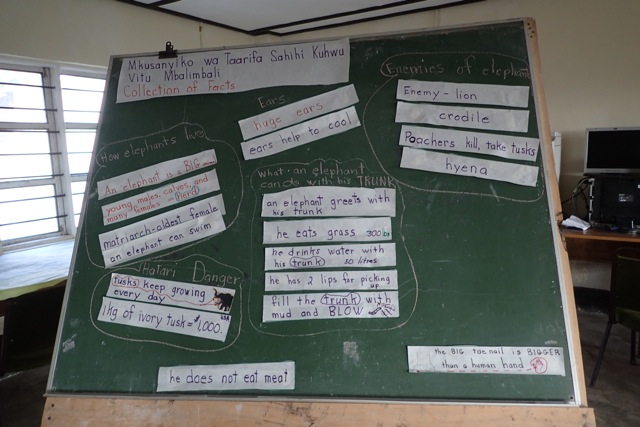 Mkusanyiko wa Taarifa Sahihi Kuhwu
Vitu Mbalimbali
Collection of Facts
Ears
huge ears
ears help to cool
Enemies of elephant
Enemy - lion
crodile
Poachers kill, take tusks
hyena
How elephants live
An elephant is a BIG
young, males, calves, and
many females =
matriarch-oldest female
an elephant can swim
What an elephant
can do with his TRUNK
an elephant greets with
his trunk
he eats grass 300
he drinks water with
his trunk 50 litres
he has 2 lips for picking
up
fill the trunk with
mud and BLOW
Hatari Danger
tusks keep growing
every day
1 kg of ivory tusk = $1,000.
he does not eat meat
the BIG toe nail is BIGGER
than a human hand